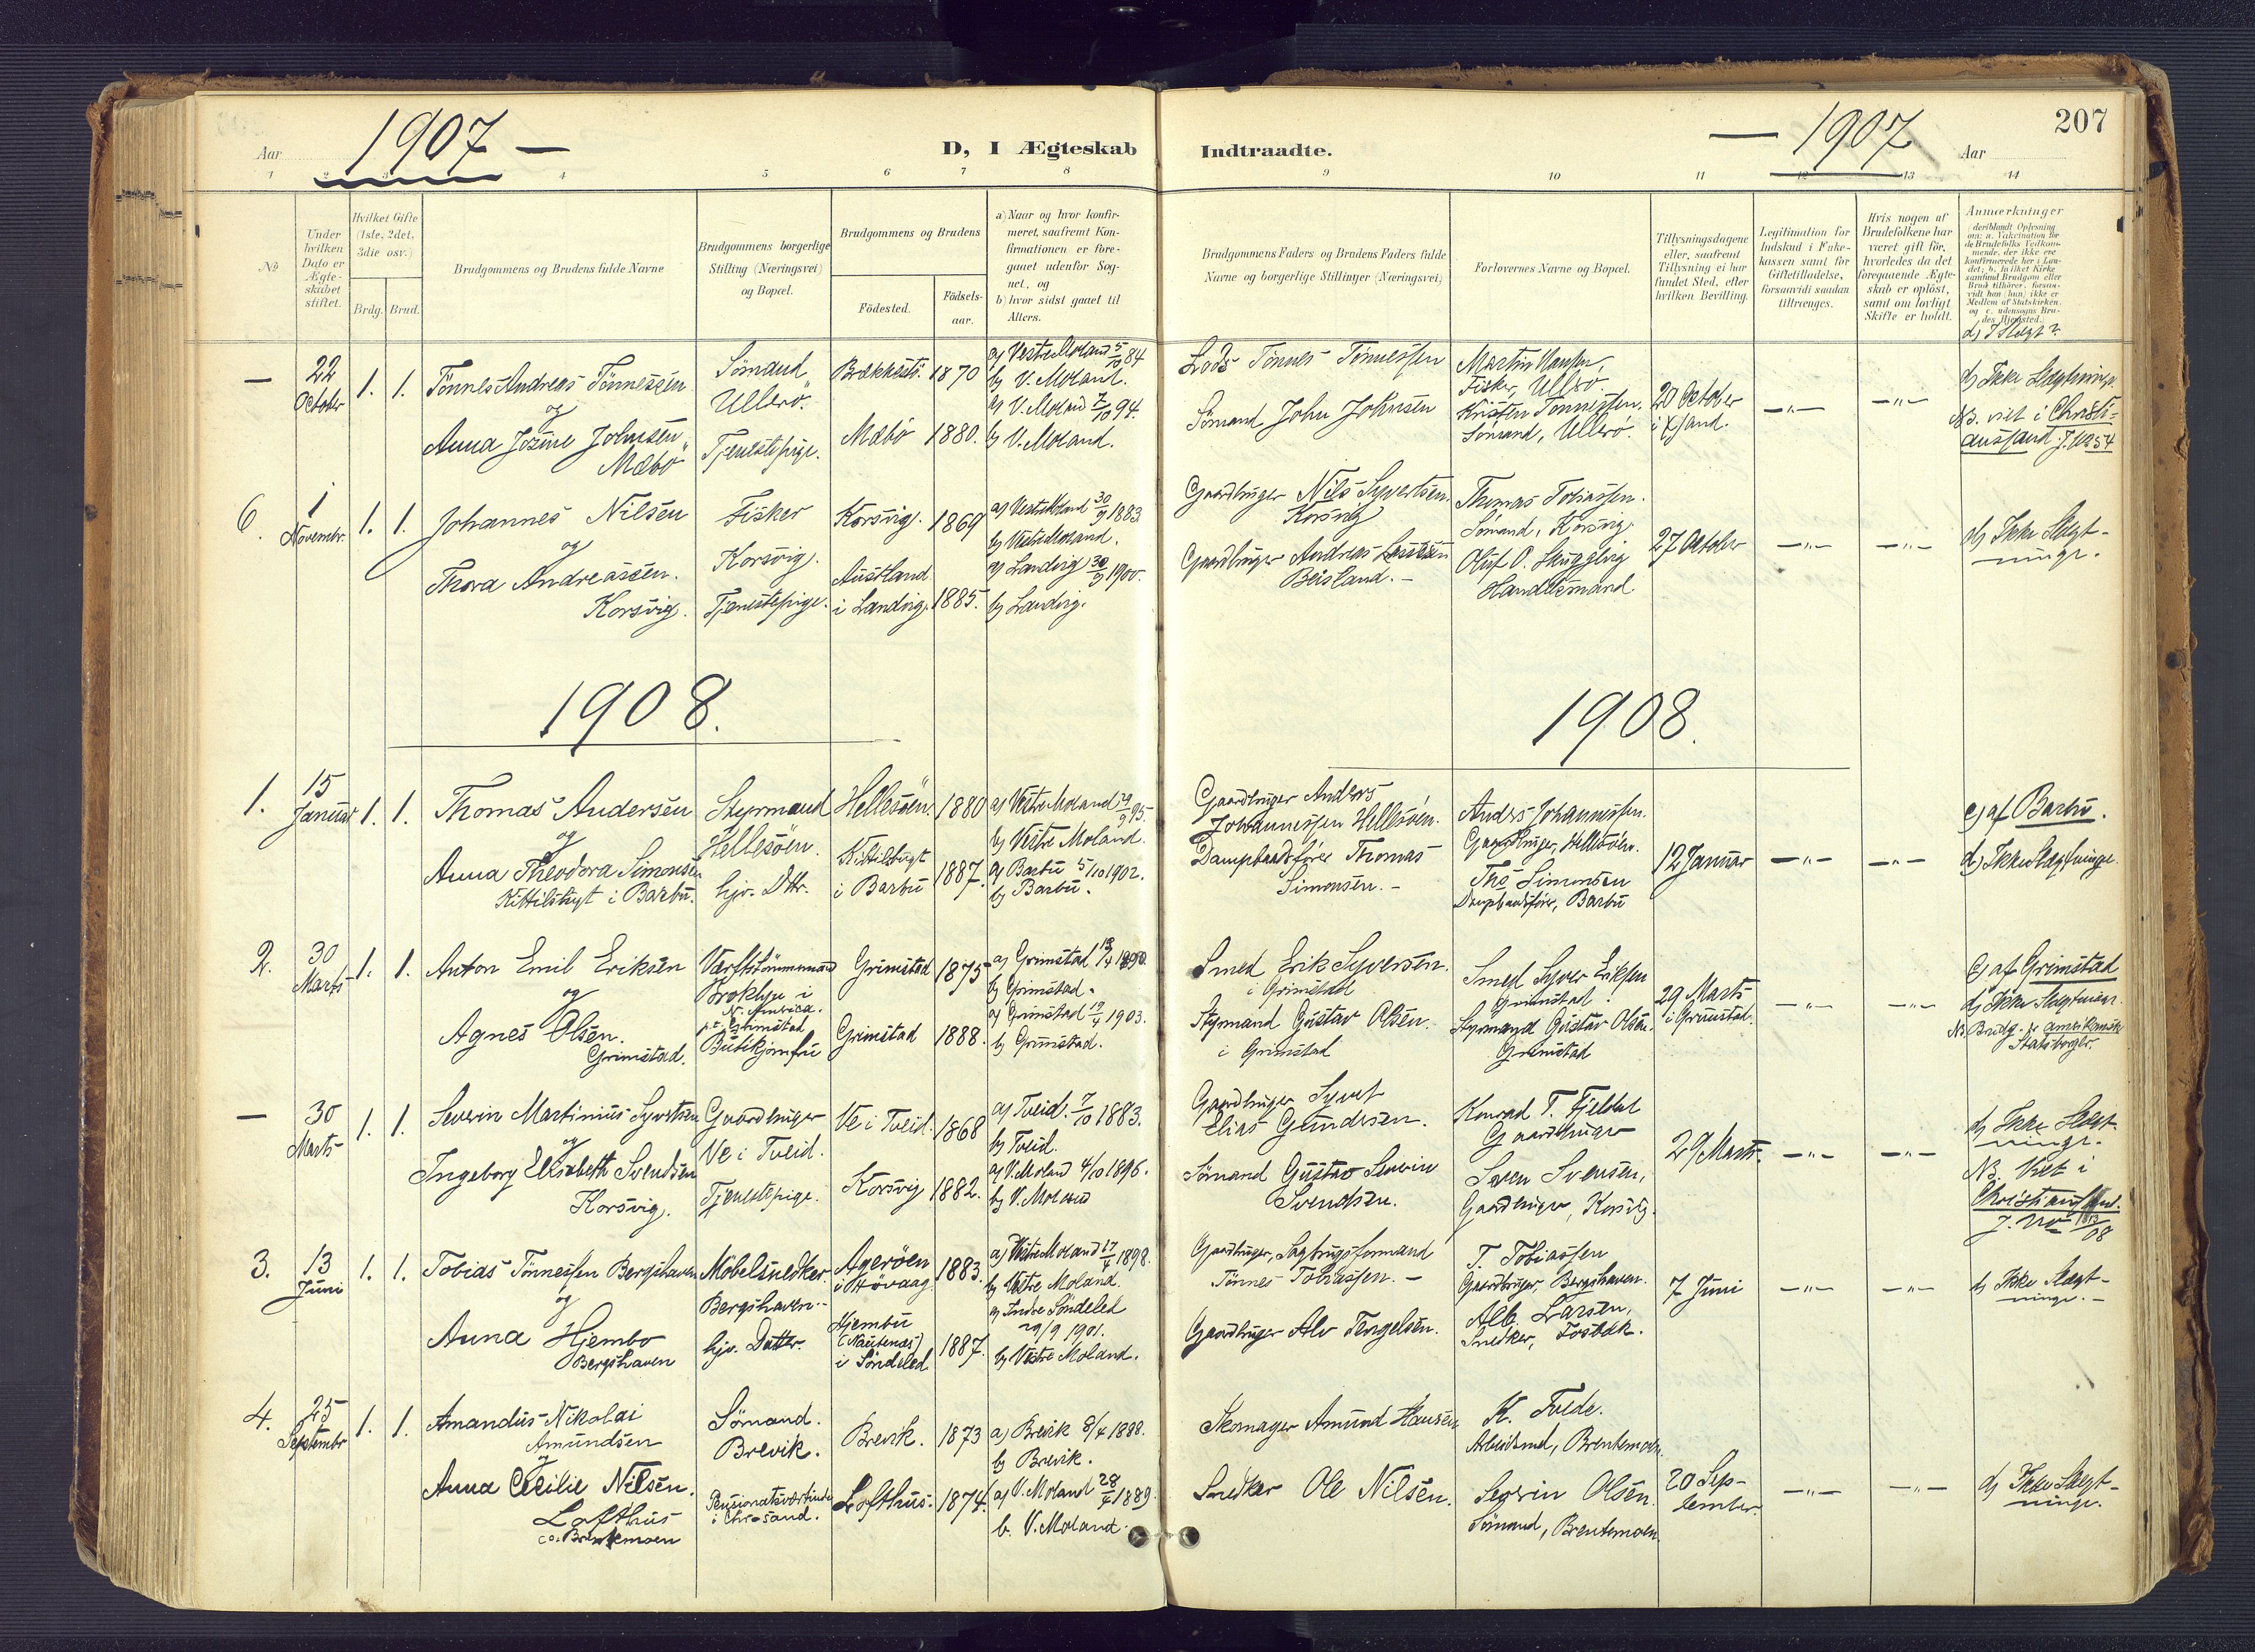 1907 —
Aar
D, I Ægteskab
Indtraadte.
— 1907
Aar
207
1 2 3 4 5 6 7 8 9 10 11 12 13 14
No
Under hvilken Dato er Ægteskabet stiftet.
Hvilket Gifte (1ste, 2det, 3die osv.)
Brdg. Brud.
Brudgommens og Brudens fulde Navne
Brudgommens borgerlige Stilling (Næringsvei) og Bopæl.
Brudgommens og Brudens
Födested.
Födselsaar.
a) Naar og hvor konfirmeret, saafremt Konfirmationen er foregaaet udenfor Sognet, og
b) hvor sidst gaaet til Alters.
Brudgommens Faders og Brudens Faders fulde Navne og borgerlige Stillinger (Næringsvei)
Forlovernes Navne og Bopæl.
Tillysningsdagene eller, saafremt Tillysning ei har fundet Sted, efter hvilken Bevilling.
Legitimation for Indskud i Enkekassen samt for Giftetilladelse, forsaavidt saadan tiltrænges.
Hvis nogen af Brudefolkene har været gift för, hvorledes da det foregaaende Ægteskab er oplöst, samt om lovligt Skifte er holdt.
Anmærkninger
d) I Slægt?
— 22 October 1. 1.
Tönnes Andreas Tönnessen
og
Anna Josine Johnsen
Mæbö
Sömand
Ullerö.
Tjenestepige.
Brækkestö. 1870
Mæbö 1880.
a) Vestre Moland 5/10 84
b) V. Moland.
a) V. Moland 7/10 94.
b) V. Moland.
Lods Tönnes Tönnessen
Sömand John Johnsen
Martin Hansen,
Fisker, Ullerö.
Kristen Tönnessen.
Sömand, Ullerö.
20 October
i Xsand.
—„—
—„—
d) Ikke Slægtninge.
NB. viet i Christiansand J. No 54
6. 1 Novembr. 1. 1.
Johannes Nilsen
og
Thora Andreassen.
Korsvig.
Fisker
Korsvig.
Tjenestepige.
Korsvig. 1869
Austland
i Landvig. 1885.
a) Vestre Moland 30/9 1883.
b) Vestre Moland.
a) Landvig 30/9 1900.
b) Landvig.
Gaardbruger Nils Syvertsen.
Korsvig
Gaardbruger Andreas
Beisland. —
Thomas Tobiassen.
Sömand, Korsvig.
Oluf O.
Handelsmand.
27 October
—„—
—„—
d) Ikke Slægtninge.
1908.
1908.
1. 15 Januar 1. 1.
Thomas Andersen
og
Anna Theodora Simonsen
Kittilsbugt i Barbu.
Styrmand
Hellesöen.
hjv. Dttr.
Hellesöen. 1880
Kittilsbugt
i Barbu 1887.
a) Vestre Moland 29/9 95.
b) Vestre Moland.
a) Barbu 5/10 1902.
b) Barbu.
Gaardbruger Anders
Johannessen Hellesöen.
Dampbaadsförer Thomas
Simonsen. —
Anders Johannessen.
Gaardbruger, Hellesöen.
Ths Simonsen
Dampbaadsförer, Barbu
12 Januar
—„—
—„—
c) af Barbu.
d) Ikke Slægtninge.
2. 30 Marts 1. 1.
Anton Emil Eriksen
og
Agnes Olsen.
Grimstad.
Værftstömmermand
Broklyn i
N. Amerika.
p.t. Grimstad
Butikjomfru
Grimstad 1875
Grimstad 1888.
a) Grimstad 13/4 1890.
b) Grimstad.
a) Grimstad 19/4 1903.
b) Grimstad.
Smed Erik Syversen.
i Grimstad
Styrmand Gustav Olsen.
i Grimstad
Smed Syver Eriksen
Grimstad.
Styrmand Gustav Olsen.
Grimstad
29 Marts
i Grimstad.
—„—
—„—
c) af Grimstad
d) Ikke Slægtninge.
NB. Brudg. er amerikansk
Statsborger.
— 30 Marts 1. 1.
Severin Martinius Syvertsen
og
Ingeborg Elisabeth Svendsen
Korsvig.
Gaardbruger
Ve i Tveid.
Tjenestepige.
Ve i Tveid. 1868
Korsvig 1882.
a) Tveid. 7/10 1883.
b) Tveid.
a) V. Moland 4/10 1896.
b) V. Moland
Gaardbruger Syvert
Elias Gundersen.
Sömand Gustav Severin
Svendsen.
Konrad T. Fjeldal
Gaardbruger
Sören Svensen,
Gaardbruger, Korsvig.
29 Marts.
—„—
—„—
d) Ikke Slægtninge.
NB. Viet i
Christiansand.
J. No 13/08
3. 13 Juni 1. 1.
Tobias Tönnessen Bergshaven
og
Anna Hjembo
Bergshaven
Möbelsnedker.
Bergshaven.
hjv. Datter.
Ageröen
i Hövaag. 1883.
Hjembu
(Nautenæs)
i Söndeled 1887.
a) Vestre Moland 17/4 1898.
b) Vestre Moland.
a) Indre Söndeled
29/9 1901.
b) Vestre Moland.
Gaardbruger, Sagbrugsformand
Tönnes Tobiassen. —
Gaardbruger Alv Tengelsen.
T. Tobiassen
Gaardbruger, Bergshaven.
Alb. Larsen,
Snedker, Fosbæk.
7 Juni
—„—
—„—
d) Ikke Slægtninge. —
4. 25 Septembr 1. 1.
Amandus Nikolai
Amundsen
og
Anna Cecilie Nilsen.
Lofthus
Brentemoen
Sömand.
Brevik.
Pensionatsværtinde
i Chr-sand.
Brevik. 1873
Lofthus. 1874.
a) Brevik 8/4 1888.
b) Brevik.
a) V. Moland 28/4 1889.
b. V. Moland.
Skomager Amund Hansen
Snedker Ole Nilsen.
K. Tvede.
Arbeidsmd, Brentemoen.
Severin Olsen.
Sömand, Brentemoen.
20 September.
—„—
—„—
d) Ikke Slægtninge.